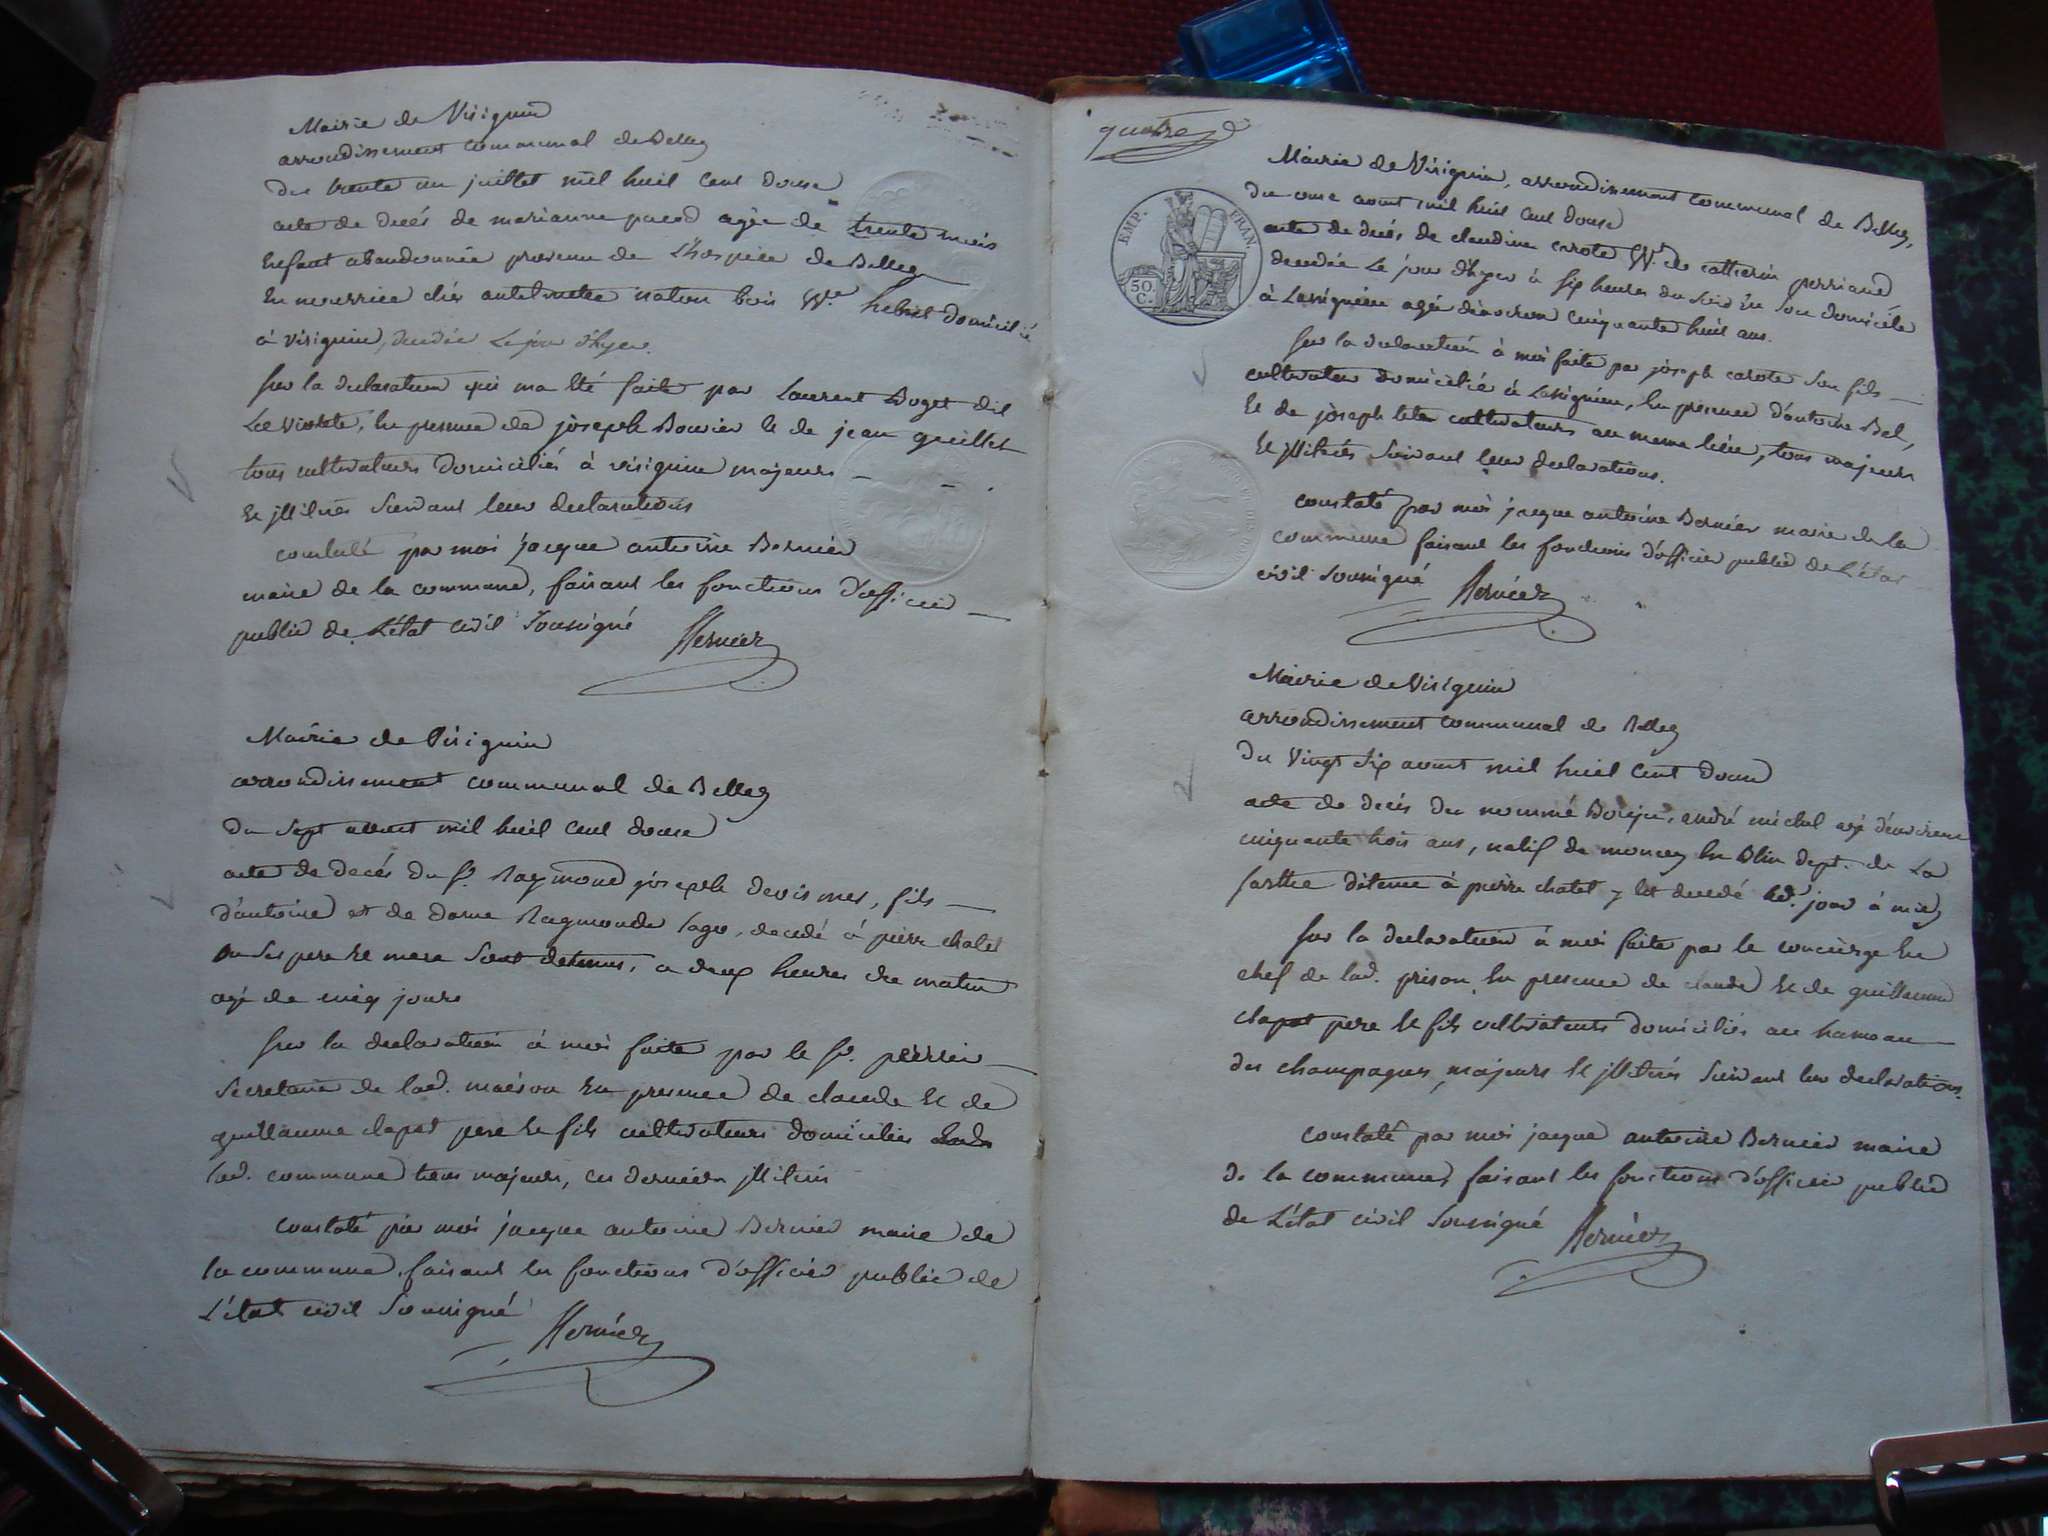 Mairie de Virignin
arrondissement communal de Belley
du trente un juillet mil huit cent douze
acte de decés de marianne pacod agée de trente mois
Enfant abandonnée provenu de L'hospice de Belley
En nourrice chés antelmette domicilié
à virignin, decedée Le jour d'hyer.
sur la declaration qui ma été faite par Laurent Boget dit
La violette, En presence de joseph Bovier & de jean guillet
tous cultivateurs domiciliés à virignin majeurs
Et jllitrés suivant leur declarations
constaté par moi jacque antoine Bernier
maire de la commune, faisant les fonctions d'officier
public de L'état civil soussigné Bernier
Mairie de Virignin
arrondissement communal de Belley
du sept aoust mil huit cent douze
acte de decés du Sr. Raymond joseph devismes, fils
d'antoine et de dame Raymonde sage, decedé à pierre chatel
ou ses pere Et mere sont detenus, a deux heures de matin
agé de cinq jours
sur la declaration à moi faite par le Sr. perrier
secretaire de lad. maison En presence de claude Et de
guillaume clapot pere Et fils cultivateurs domiciliés
lad. commune tous majeurs, ces derniers jllitrés
constaté par moi jacque antoine Bernier maire de
la commune, faisant les fonctions d'officier public de
L'état civil soussigné Bernier
quatre
EMP. FRAN.
50. C.
Mairie de Virignin, arrondissement communal de Belley,
du onze aoust mil huit cent douze
acte de decés de claudine carote Ve. de catherin
decedée Le jour d'hyer à six heures du soir En son domicile
à Lassignieu agée d'environ cinquante huit ans.
sur la declaration à moi faite par joseph carote son fils
cultivateur domicilié à Lassignieu, En presence d'antoine Bel,
Et de joseph cultivateurs au meme lieu, tous majeurs
Et jllitrés suivant leur declarations.
constaté par moi jacque antoine Bernier maire de la
commune faisant les fonctions d'officier public de L'état
civil soussigné Bernier
Mairie de Virignin
arrondissement communal de Belley
du Vingt six aoust mil huit cent douze
acte de decés du nommé andré michel agé d'environ
cinquante trois ans, natif de moncey En Blin dept. de La
sarthe detenu à pierre chatel y Est decedé led. jour à midy
sur la declaration à moi faite par le concierge En
chef de lad. prison En presence de claude Et de guillaume
clapot pere Et fils cultivateurs domiciliés au hameau
des champagnes, majeurs Et jllitrés suivant leur declarations.
constaté par moi jacque antoine Bernier maire
de la commune, faisant les fonctions d'officier public
de L'état civil soussigné Bernier